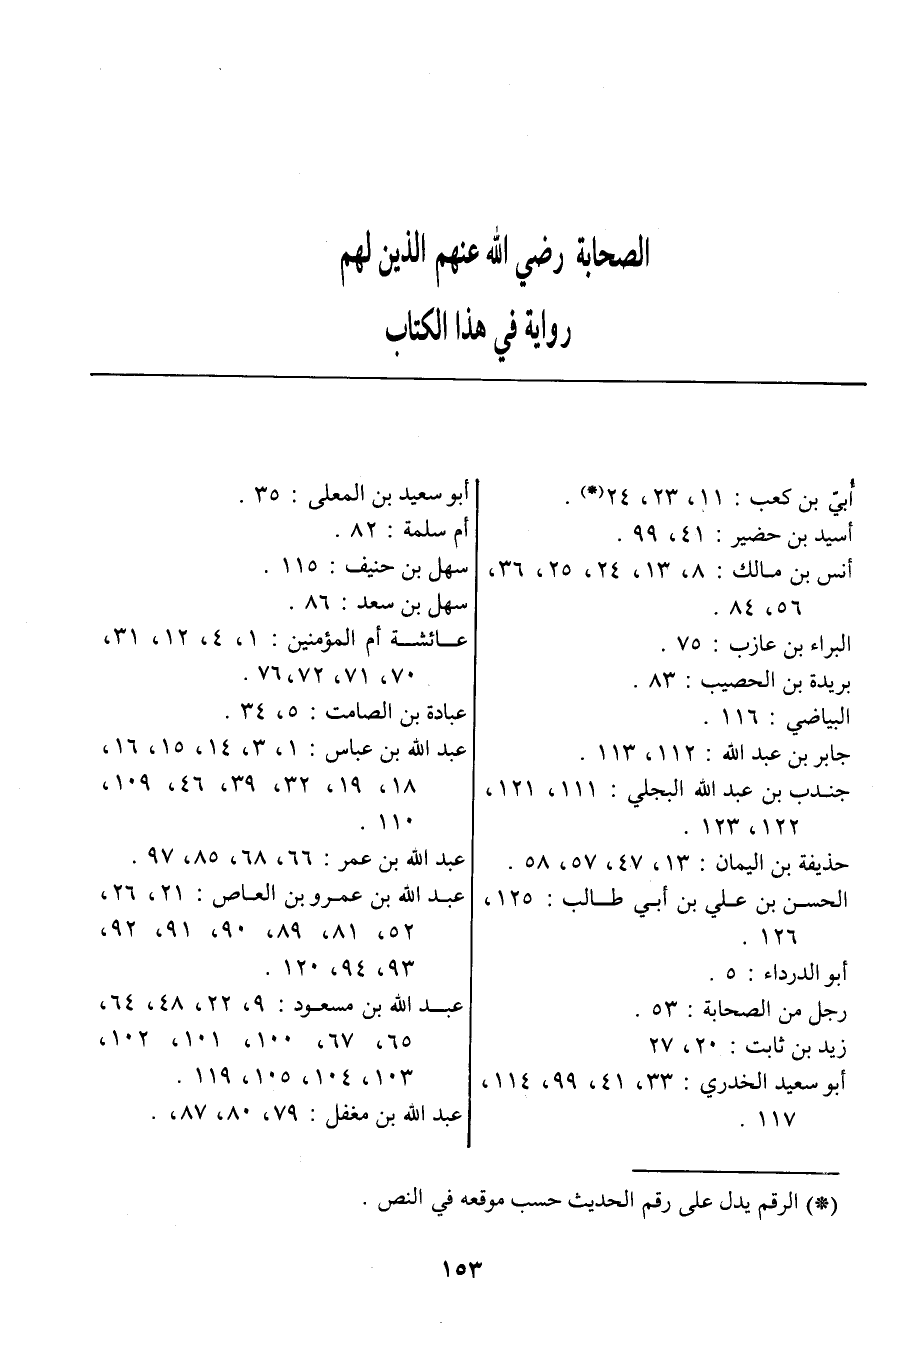 الصحابة رضي الله عنهم الذين لهم
رواية في هذا الكتاب
أُبيّ بن كعب : ١١، ٢٣، ٢٤(*) .
أسيد بن حضير : ٤١، ٩٩ .
أنس بن مـالك : ٨، ١٣، ٢٤، ٢٥، ٣٦،
٥٦، ٨٤ .
البراء بن عازب : ٧٥ .
بريدة بن الحصيب : ٨٣ .
البياضي : ١١٦ .
جابر بن عبد الله : ١١٢، ١١٣ .
جنـدب بن عبد الله البجلي : ١١١، ١٢١،
١٢٢، ١٢٣ .
حذيفة بن اليمان : ١٣، ٤٧، ٥٧، ٥٨ .
الحسـن بن عـلي بن أبـي طـالب : ١٢٥،
١٢٦ .
أبو الدرداء : ٥ .
رجل من الصحابة : ٥٣ .
زيد بن ثابت : ٢٠، ٢٧
أبو سعيد الخدري : ٣٣، ٤١، ٩٩، ١١٤،
١١٧ .
أبو سعيد بن المعلى : ٣٥ .
أم سلمة : ٨٢ .
سهل بن حنيف : ١١٥ .
سهل بن سعد : ٨٦ .
عـائشـة أم المؤمنين : ١، ٤، ١٢، ٣١،
٧٠، ٧١، ٧٢،٧٦ .
عبادة بن الصامت : ٥، ٣٤ .
عبد الله بن عباس : ١، ٣، ١٤، ١٥، ١٦،
١٨، ١٩، ٣٢، ٣٩، ٤٦، ١٠٩،
١١٠ .
عبد الله بن عمر : ٦٦، ٦٨، ٨٥، ٩٧ .
عبـد الله بن عمـرو بن العـاص : ٢١، ٢٦،
٥٢، ٨١، ٨٩، ٩٠، ٩١، ٩٢،
٩٣، ٩٤، ١٢٠ .
عبـد الله بن مسعـود : ٩، ٢٢، ٤٨، ٦٤،
٦٥، ٦٧، ١٠٠، ١٠١، ١٠٢،
١٠٣، ١٠٤، ١٠٥، ١١٩ .
عبد الله بن مغفل : ٧٩، ٨٠، ٨٧، .
(*) الرقم يدل على رقم الحديث حسب موقعه في النص .
١٥٣